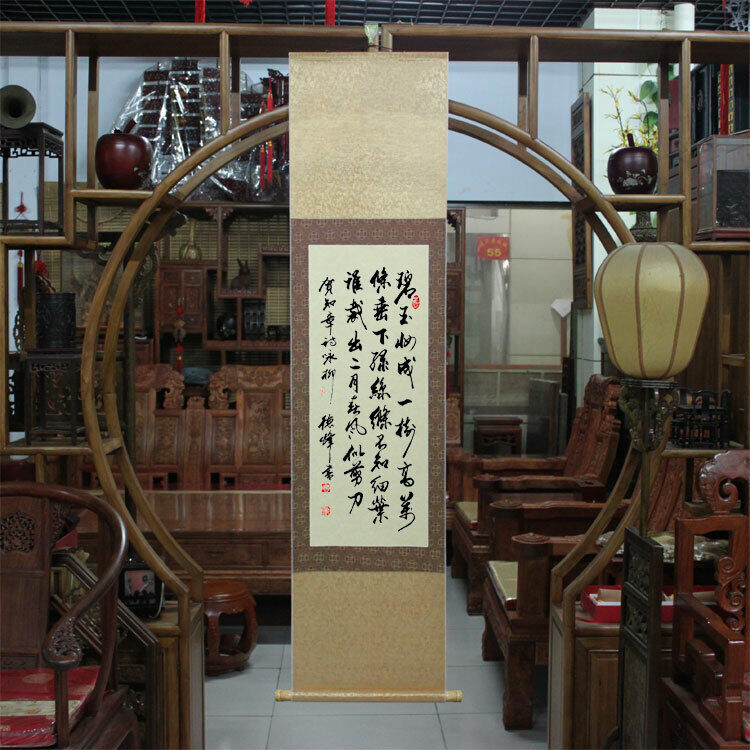 碧玉妝成一樹高萬
條垂下綠絲絛不知細葉
誰裁出二月春風似剪刀
賀知章詩詠柳 書
55